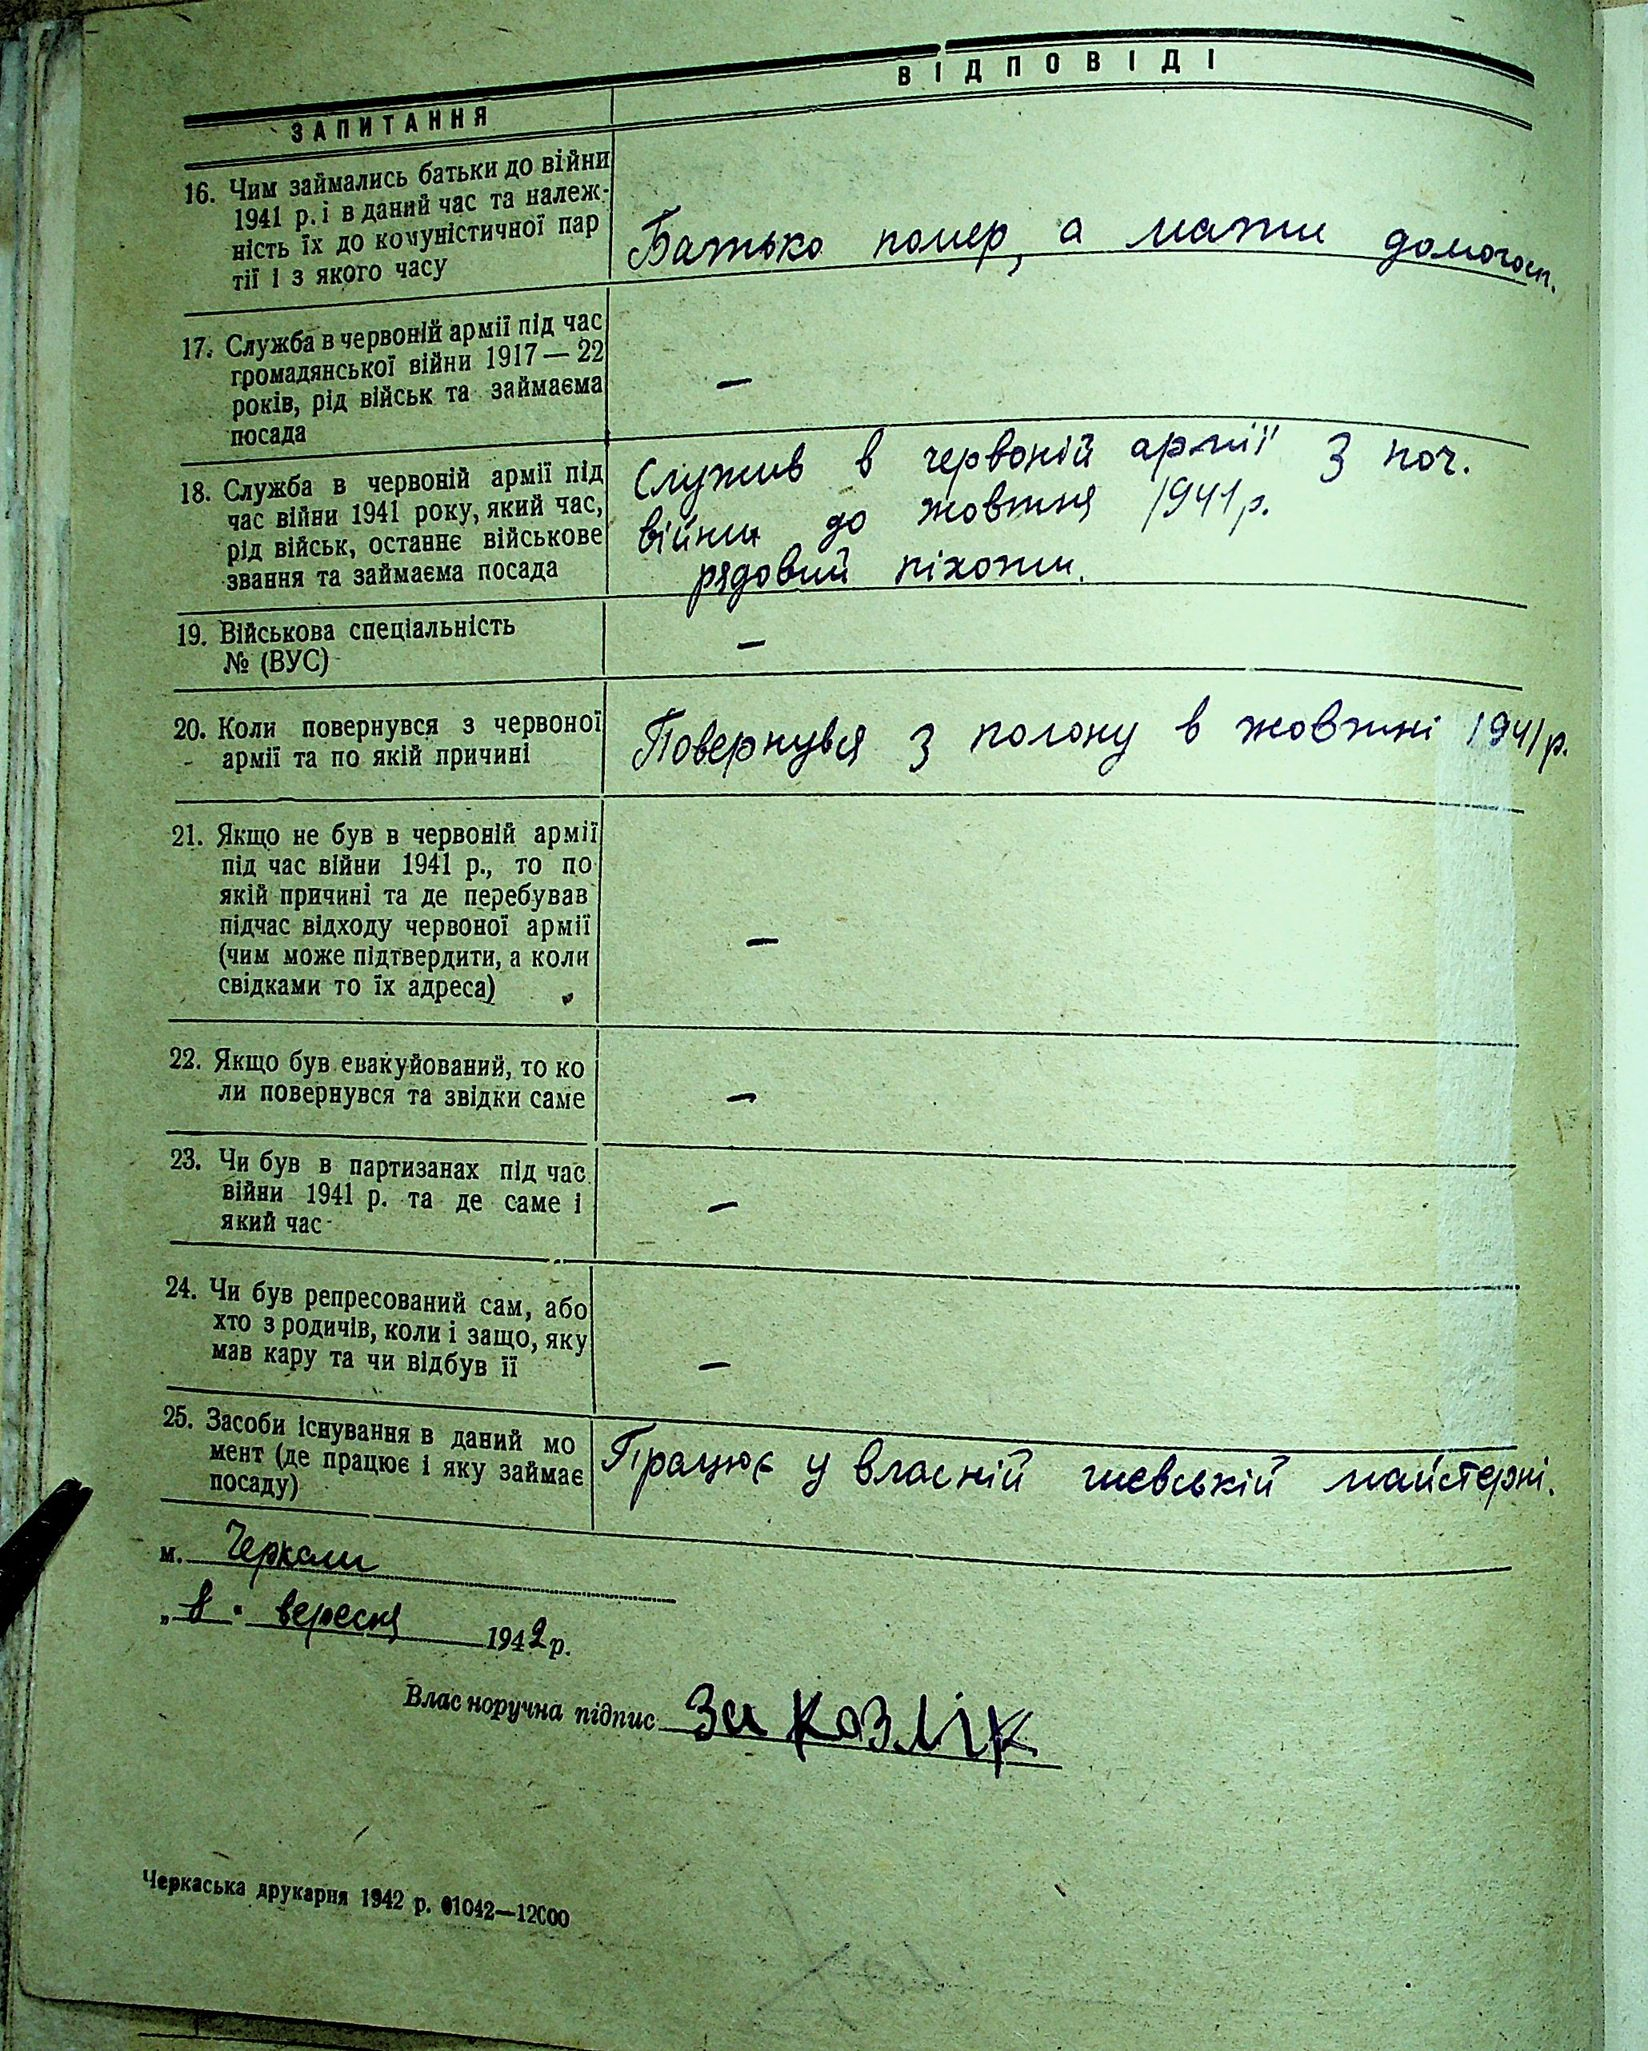 ЗАПИТАННЯ
ВІДПОВІДІ
16. Чим займались батьки до війни
1941 р. і в даний час та належ-
ність їх до комуністичної пар
тії і з якого часу
Батько помер, а мати домогосп.
17. Служба в червоній армії під час
громадянської війни 1917 — 22
років, рід військ та займаєма
посада
—
18. Служба в червоній армії під
час війни 1941 року, який час,
рід військ, останнє військове
звання та займаєма посада
Служив в червоній армії з поч.
війни до жовтня 1941 р.
рядовий піхоти.
19. Військова спеціальність
№ (ВУС)
—
20. Коли повернувся з червоної
армії та по якій причині
Повернувся з полону в жовтні 1941 р.
21. Якщо не був в червоній армії
під час війни 1941 р., то по
якій причині та де перебував
підчас відходу червоної армії
(чим може підтвердити, а коли
свідками то їх адреса)
—
22. Якщо був евакуйований, то ко
ли повернувся та звідки саме
—
23. Чи був в партизанах під час
війни 1941 р. та де саме і
який час
—
24. Чи був репресований сам, або
хто з родичів, коли і защо, яку
мав кару та чи відбув її
—
25. Засоби існування в даний мо
мент (де працює і яку займає
посаду)
Працює у власній шевській майстерні.
м. Черкаси
" " вересня 1942 р.
Власноручна підпис
Черкаська друкарня 1942 р. 01042—12000